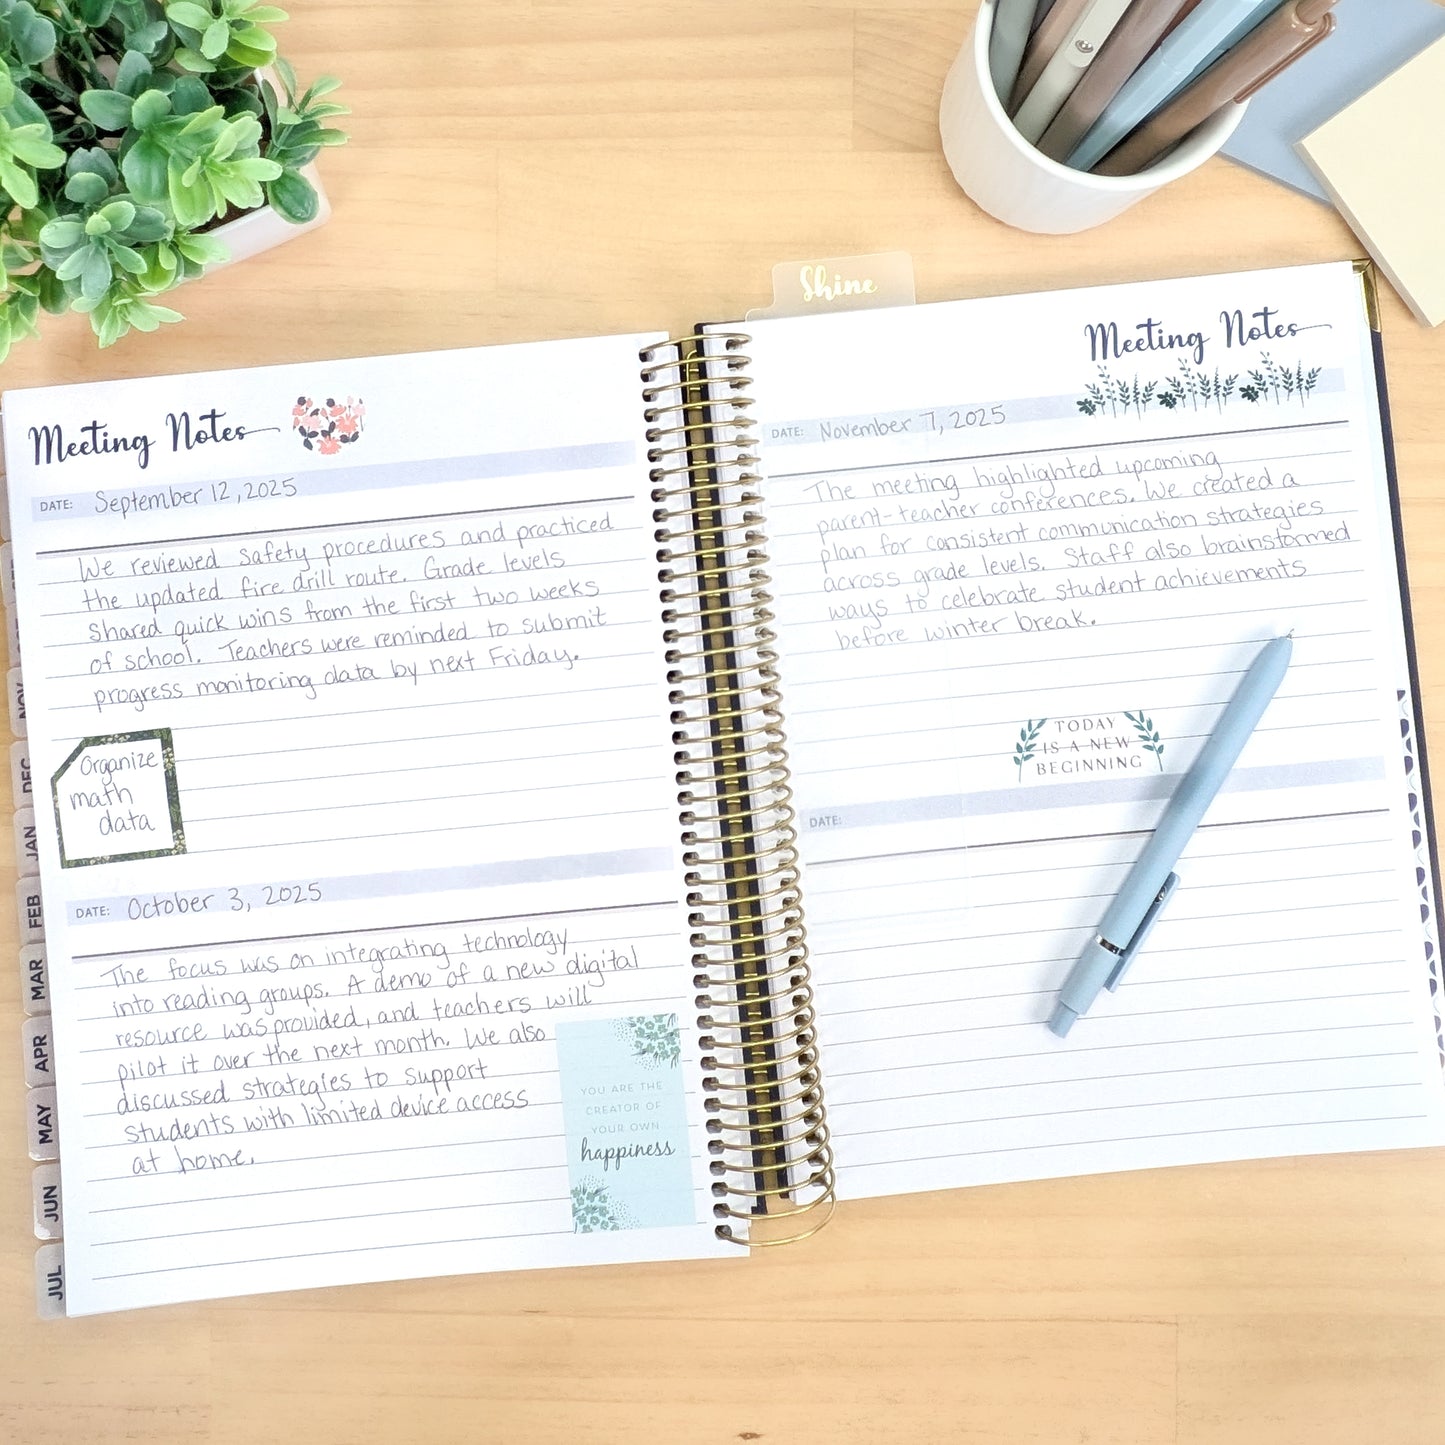 Shine
Meeting Notes
DATE: September 12, 2025
We reviewed safety procedures and practiced
the updated fire drill route. Grade levels
shared quick wins from the first two weeks
of school. Teachers were reminded to submit
progress monitoring data by next Friday.
Organize
math
data
DATE: October 3, 2025
The focus was on integrating technology
into reading groups. A demo of a new digital
resource was provided, and teachers will
pilot it over the next month. We also
discussed strategies to support
students with limited device access
at home.
YOU ARE THE
CREATOR OF
YOUR OWN
happiness
NOV
DEC
JAN
FEB
MAR
APR
MAY
JUN
JUL
Meeting Notes
DATE: November 7, 2025
The meeting highlighted upcoming
parent-teacher conferences. We created a
plan for consistent communication strategies
across grade levels. Staff also brainstormed
ways to celebrate student achievements
before winter break.
TODAY
IS A NEW
BEGINNING
DATE: